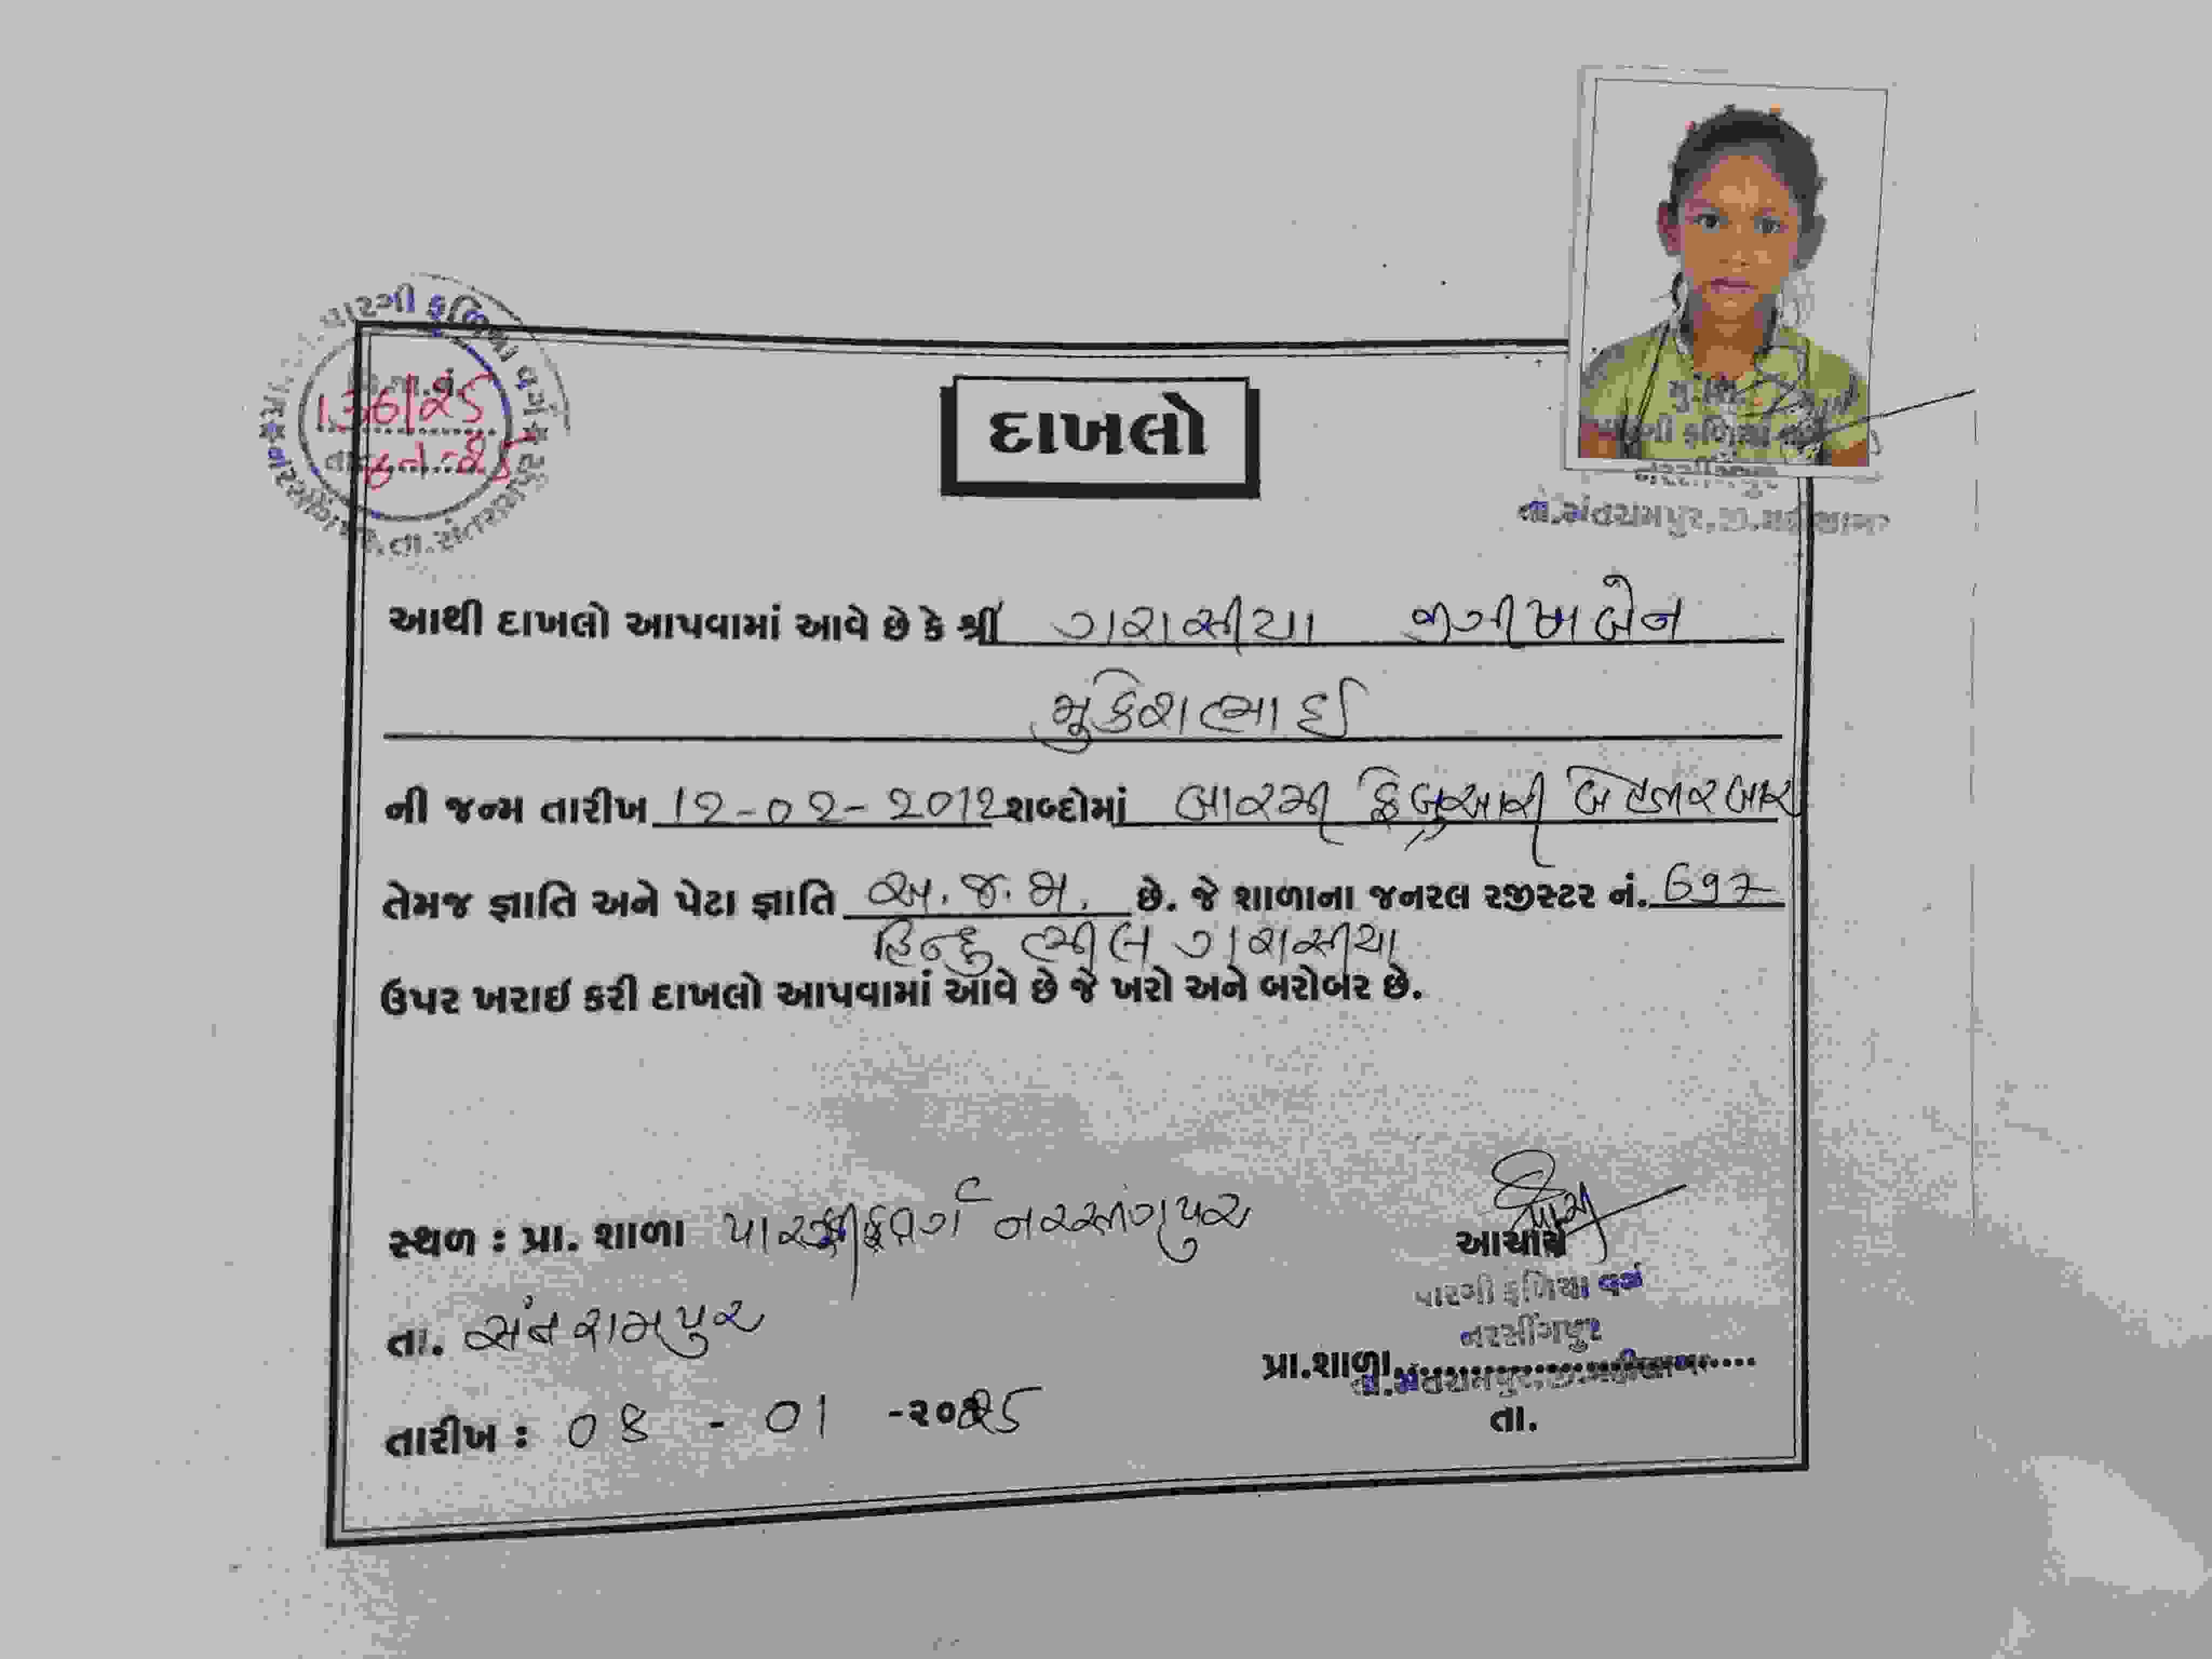 પારગી ફળિયા વર્ગ
136/25
દાખલો
આથી દાખલો આપવામાં આવે છે કે શ્રી ગરાસીયા જીગીષાબેન
મુકેશભાઈ
ની જન્મ તારીખ 12-02-2012 શબ્દોમાં બારમી ફેબ્રુઆરી બે હજાર બાર
તેમજ જ્ઞાતિ અને પેટા જ્ઞાતિ અ.જ.જા. છે. જે શાળાના જનરલ રજીસ્ટર નં. 697
હિન્દુ ભીલ ગરાસીયા
ઉપર ખરાઇ કરી દાખલો આપવામાં આવે છે જે ખરો અને બરોબર છે.
સ્થળ : પ્રા. શાળા પારગી ફ વર્ગ નરસીંગપુર
આચાર્ય
પારગી ફળિયા વર્ગ
તા. સંતરામપુર
નરસીંગપુર
પ્રા.શાળા
તા.સંતરામપુર,જી.મહીસાગર
તા.
તારીખ : 08 - 01 - 2025